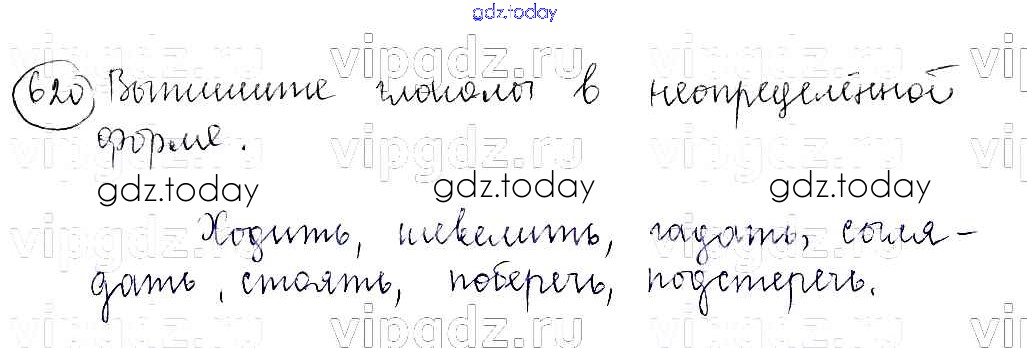 gdz.today
vipgdz.ru vipgdz.ru vipgdz.ru
620 Выпишите глаголы в неопределённой
форме.
vipgdz.ru vipgdz.ru vipgdz.ru
gdz.today gdz.today gdz.today
Ходить, шевелить, гадать, сыля-
vipgdz.ru vipgdz.ru vipgdz.ru
дать, стоять, поберечь, подстеречь.
vipgdz.ru vipgdz.ru vipgdz.ru